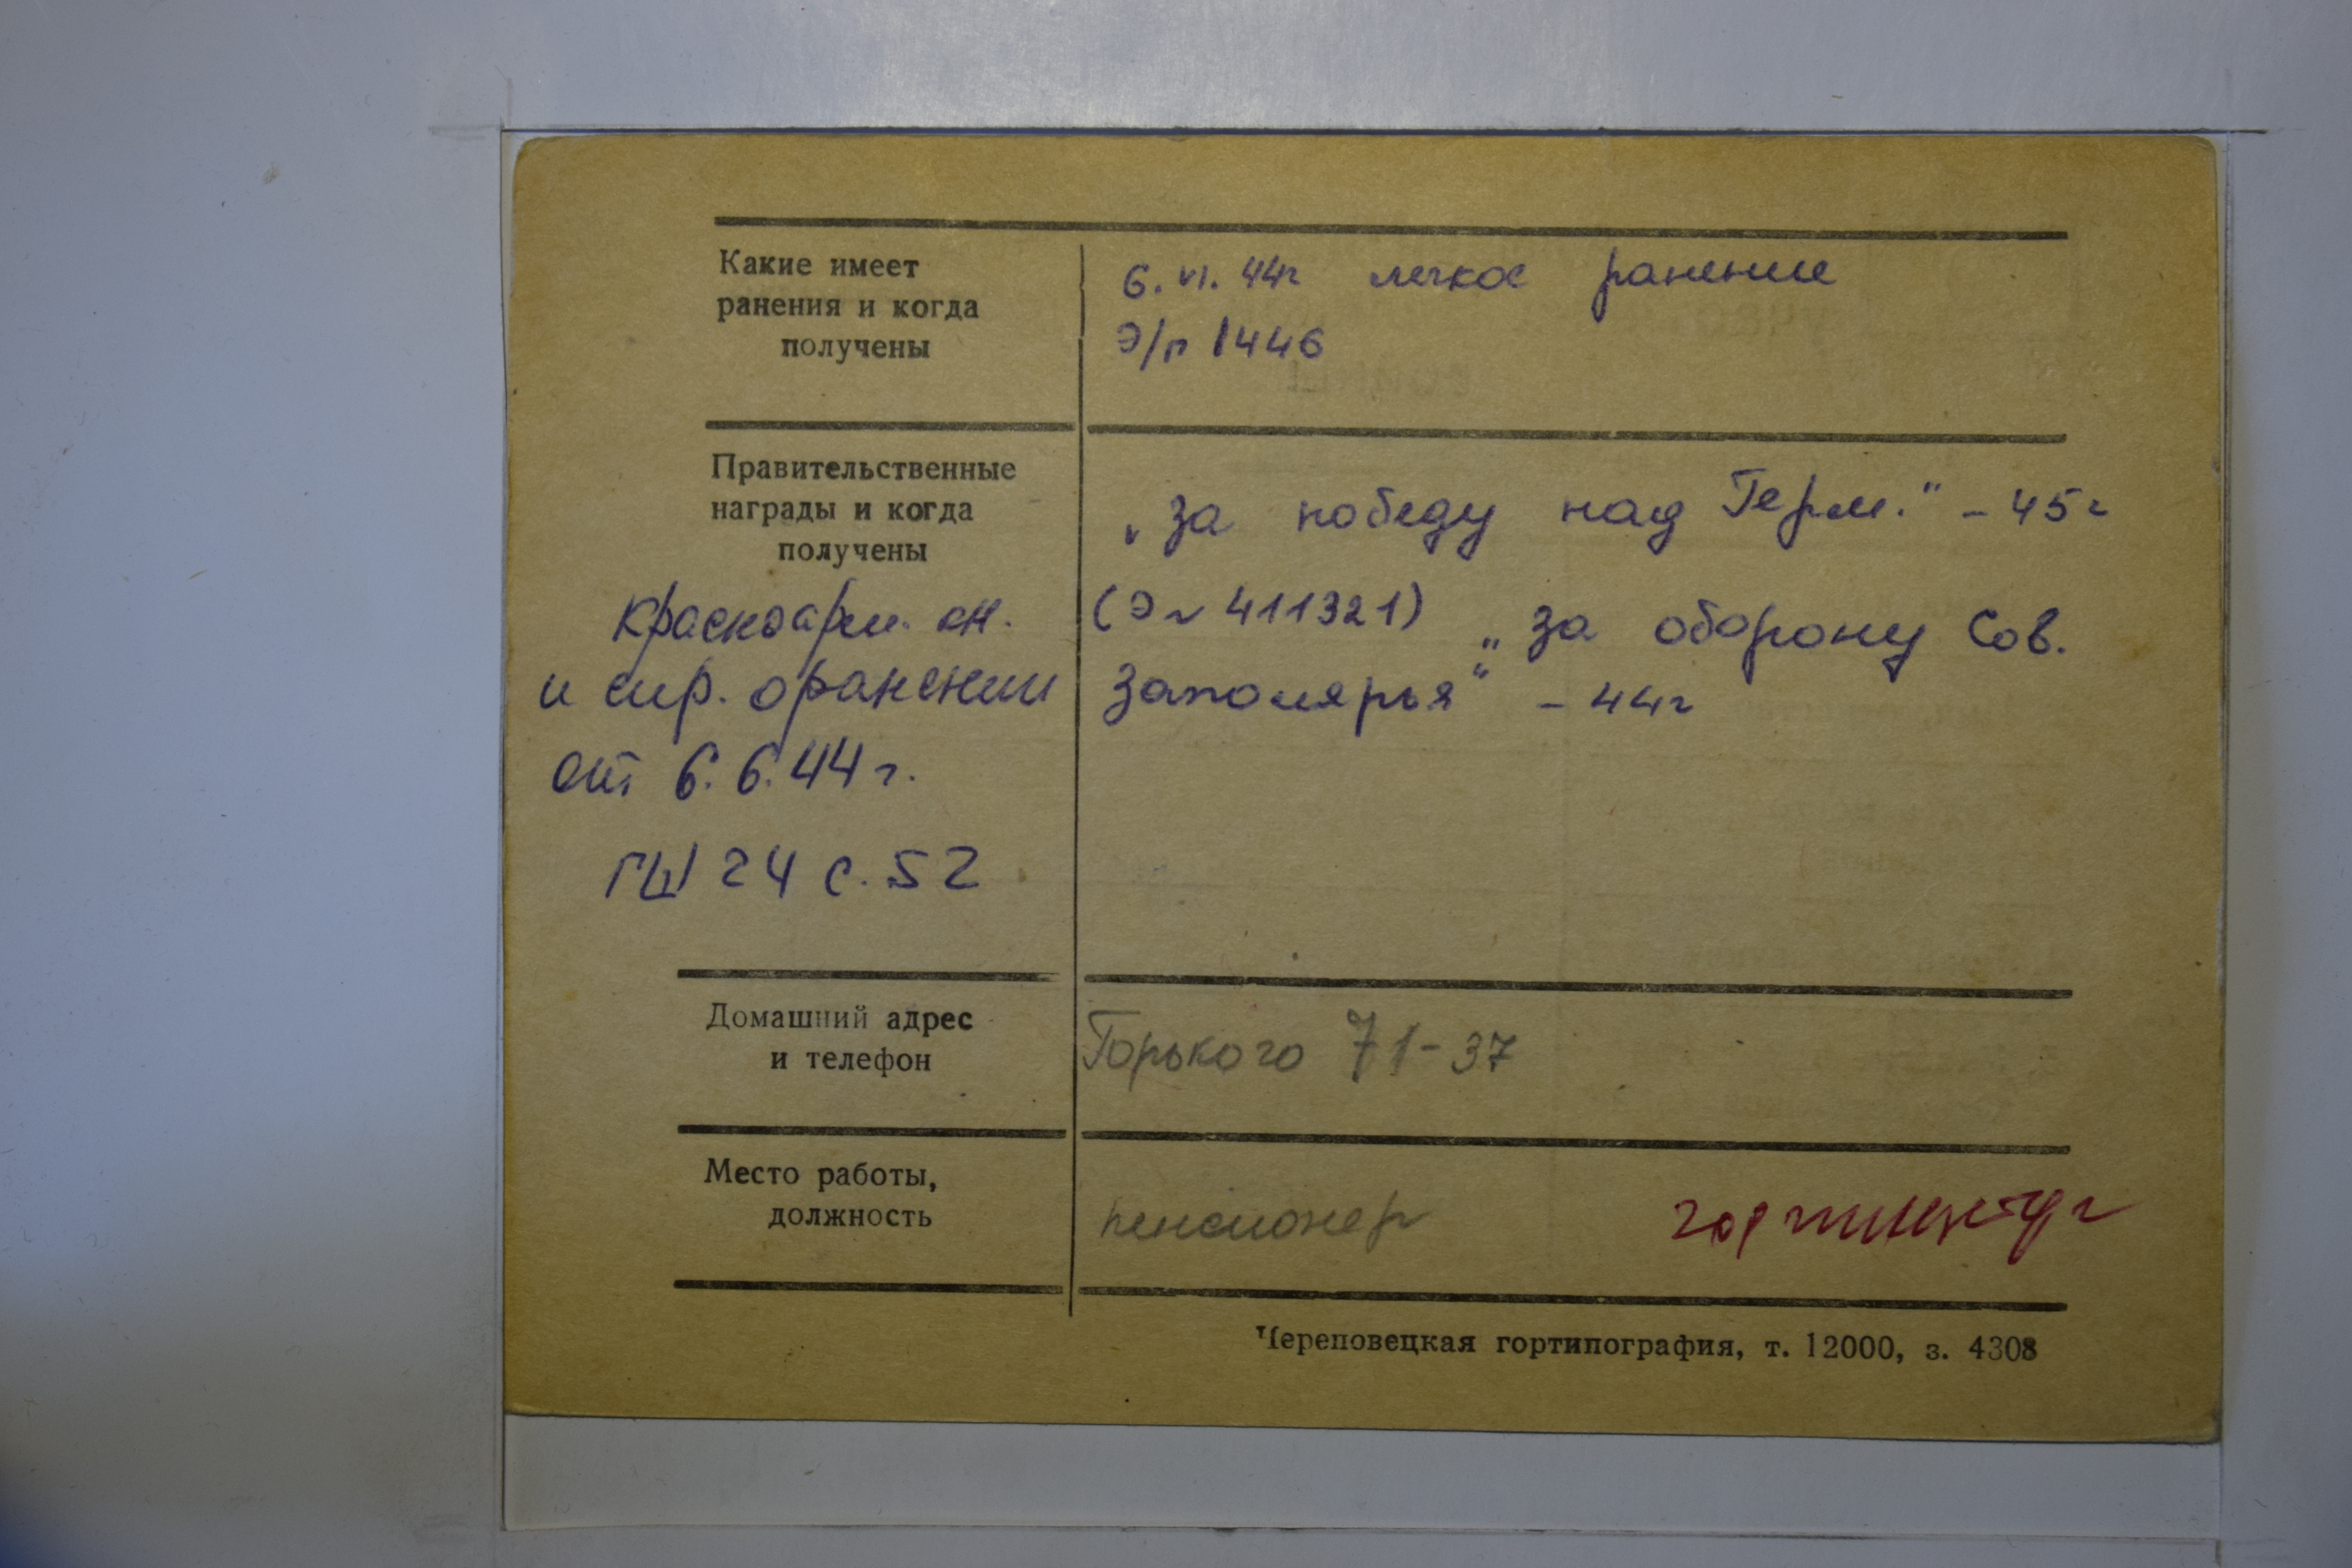 Какие имеет
ранения и когда
получены
6. VI. 44г легкое ранение
Э/п 1446
Правительственные
награды и когда
получены
„За победу над Герм." – 45г
(Э № 411321) „За оборону Сов.
Заполярья" – 44г
Красноарм. кн.
и спр. о ранении
от 6.6.44 г.
ГШ 24 с. 52
Домашний адрес
и телефон
Горького 71-37
Место работы,
должность
пенсионер
Череповецкая гортипография, т. 12000, з. 4308